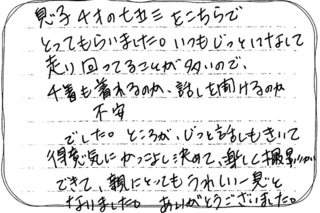 息子5才の七五三をこちらで
とってもらいました。いつもじっとしてなくて
走り回ってることが多いので、
着も着れるのか、話しを聞けるのか
不安
でした。ところが、じっと話しもきいて
得意気にかっこよく決めて、楽しく撮影
できて、親にとってもうれしい一日と
なりました。ありがとうございました。